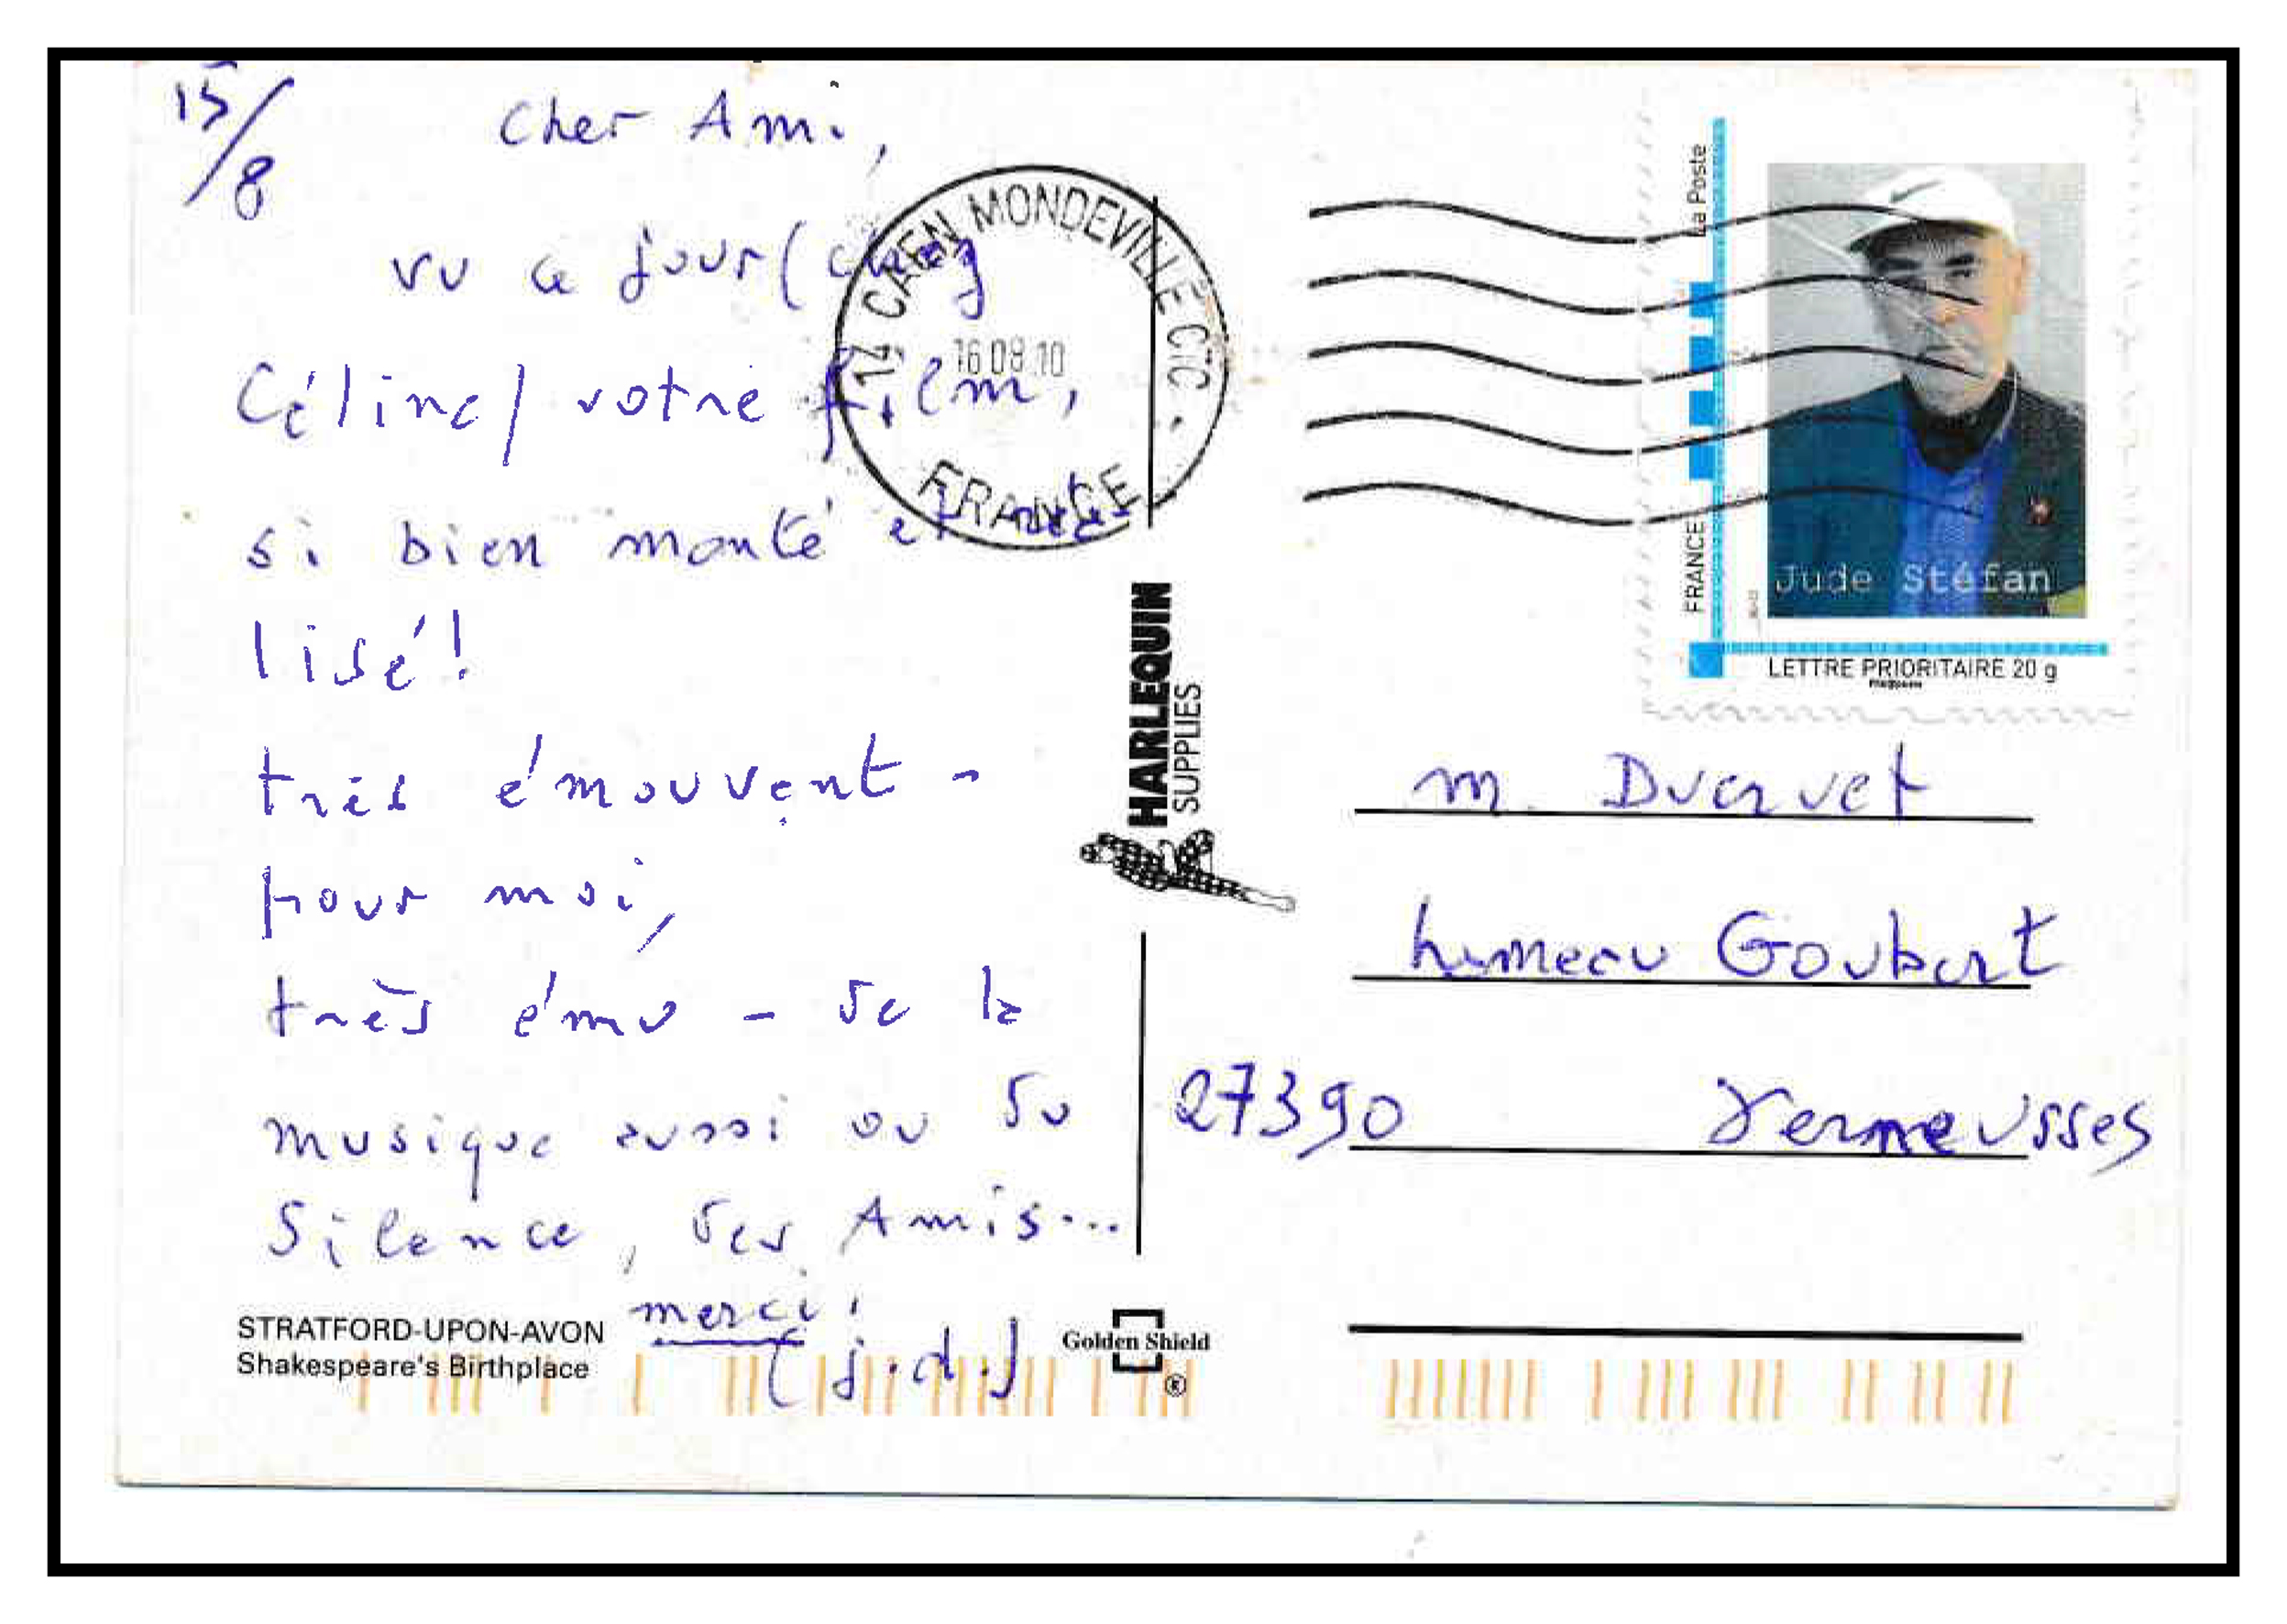 15/8
Cher Ami,
vu ce jour (chez
Céline) votre film,
si bien monté et
lisé!
très émouvant -
pour moi,
très ému - de la
musique aussi ou du
Silence, des Amis...
merci!
(j.d.)
STRATFORD-UPON-AVON
Shakespeare's Birthplace
14 CAEN MONDEVILLE CTC
16 08 10
FRANCE
HARLEQUIN
SUPPLIES
Golden Shield
®
La Poste
FRANCE
Jude Stéfan
LETTRE PRIORITAIRE 20 g
m. Ducruet
hameau Goubert
27390 Verneusses